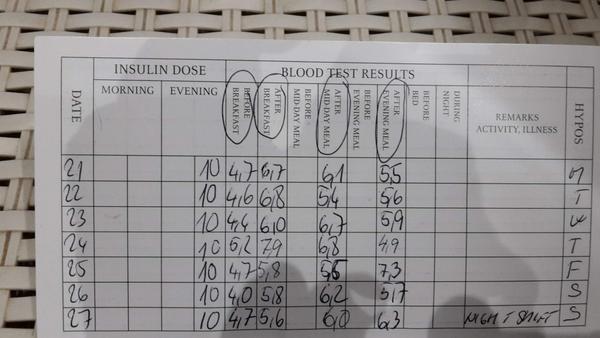 INSULIN DOSE BLOOD TEST RESULTS
DATE MORNING EVENING BEFORE BREAKFAST AFTER BREAKFAST BEFORE MID-DAY MEAL AFTER MID-DAY MEAL BEFORE EVENING MEAL AFTER EVENING MEAL BEFORE BED DURING NIGHT REMARKS ACTIVITY, ILLNESS HYPOS
21 10 4,7 6,7 6,1 5,5 M
22 10 4,6 6,8 5,4 5,6 T
23 10 4,4 6,0 6,7 5,9 W
24 10 5,2 7,9 6,8 4,9 T
25 10 4,7 5,8 5,5 7,3 F
26 10 4,0 5,8 6,2 5,7 S
27 10 4,7 5,6 6,0 6,3 NIGHT SHIFT S